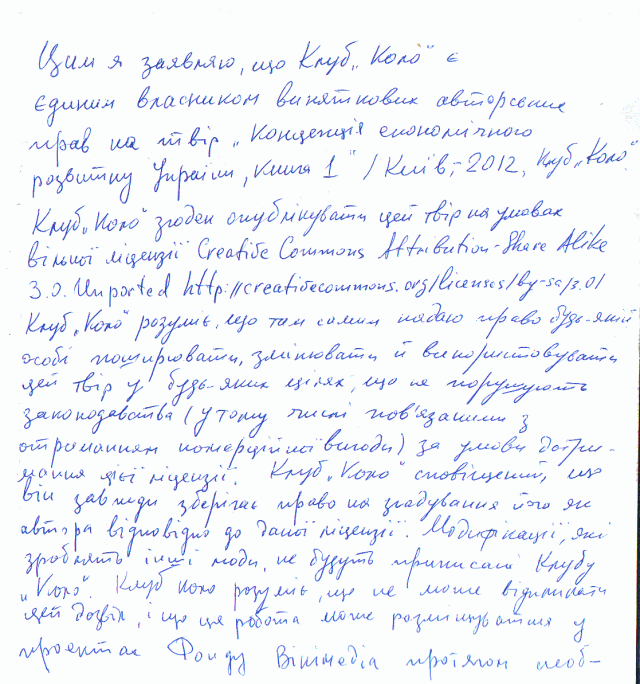 Цим я заявляю, що Клуб „Коло" є
єдиним власником виняткових авторських
прав на твір „Концепція економічного
розвитку України „Книга 1" / Київ, - 2012, Клуб „Коло"
Клуб „Коло" згоден опублікувати цей твір на умовах
вільної ліцензії Creative Commons Attribution-Share Alike
3.0. Unported http://creativecommons.org/licenses/by-sa/3.0/
Клуб „Коло" розуміє, що тим самим надаю право будь-якій
особі поширювати, змінювати й використовувати
цей твір у будь-яких цілях, що не порушують
законодавства (у тому числі пов'язаними з
отриманням комерційної вигоди) за умови дотри-
мання цієї ліцензії. Клуб „Коло" сповіщений, що
він завжди зберігає право на згадування його як
автора відповідно до даної ліцензії. Модифікації, які
зроблять інші люди, не будуть приписані Клубу
„Коло". Клуб Коло розуміє, що не може відкликати
цей дозвіл, і що ця робота може розміщуватися у
проектах Фонду Вікімедіа протягом необ-